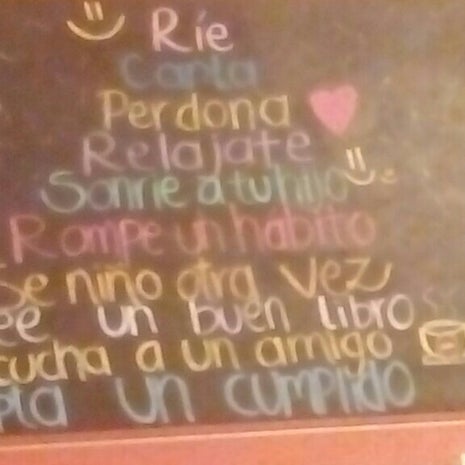 Ríe
Canta
Perdona
Relajate
Sonrie a tu hijo
Rompe un habito
Se niño otra vez
ee un buen libro
cucha a un amigo
pta un cumplido